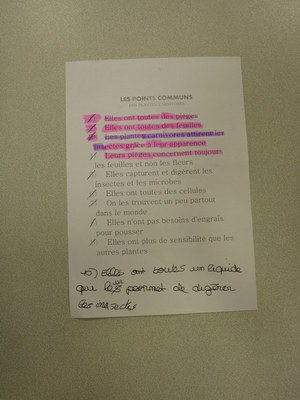 LES POINTS COMMUNS
DES PLANTES CARNIVORES
1. Elles ont toutes des pièges
2. Elles ont toutes des feuilles
3. Les plantes attirent les
insectes grâce à leur apparence
4. Leurs pièges concernent toujours
les feuilles et non les fleurs
Elles capturent et digèrent les
insectes et les microbes
Elles ont toutes des cellules
On les trouvent un peu partout
dans le monde
Elles n'ont pas besoins d'engrais
pour pousser
Elles ont plus de sensibilité que les
autres plantes
10) Elles ont toutes un liquide
qui permet de digérer
les insectes